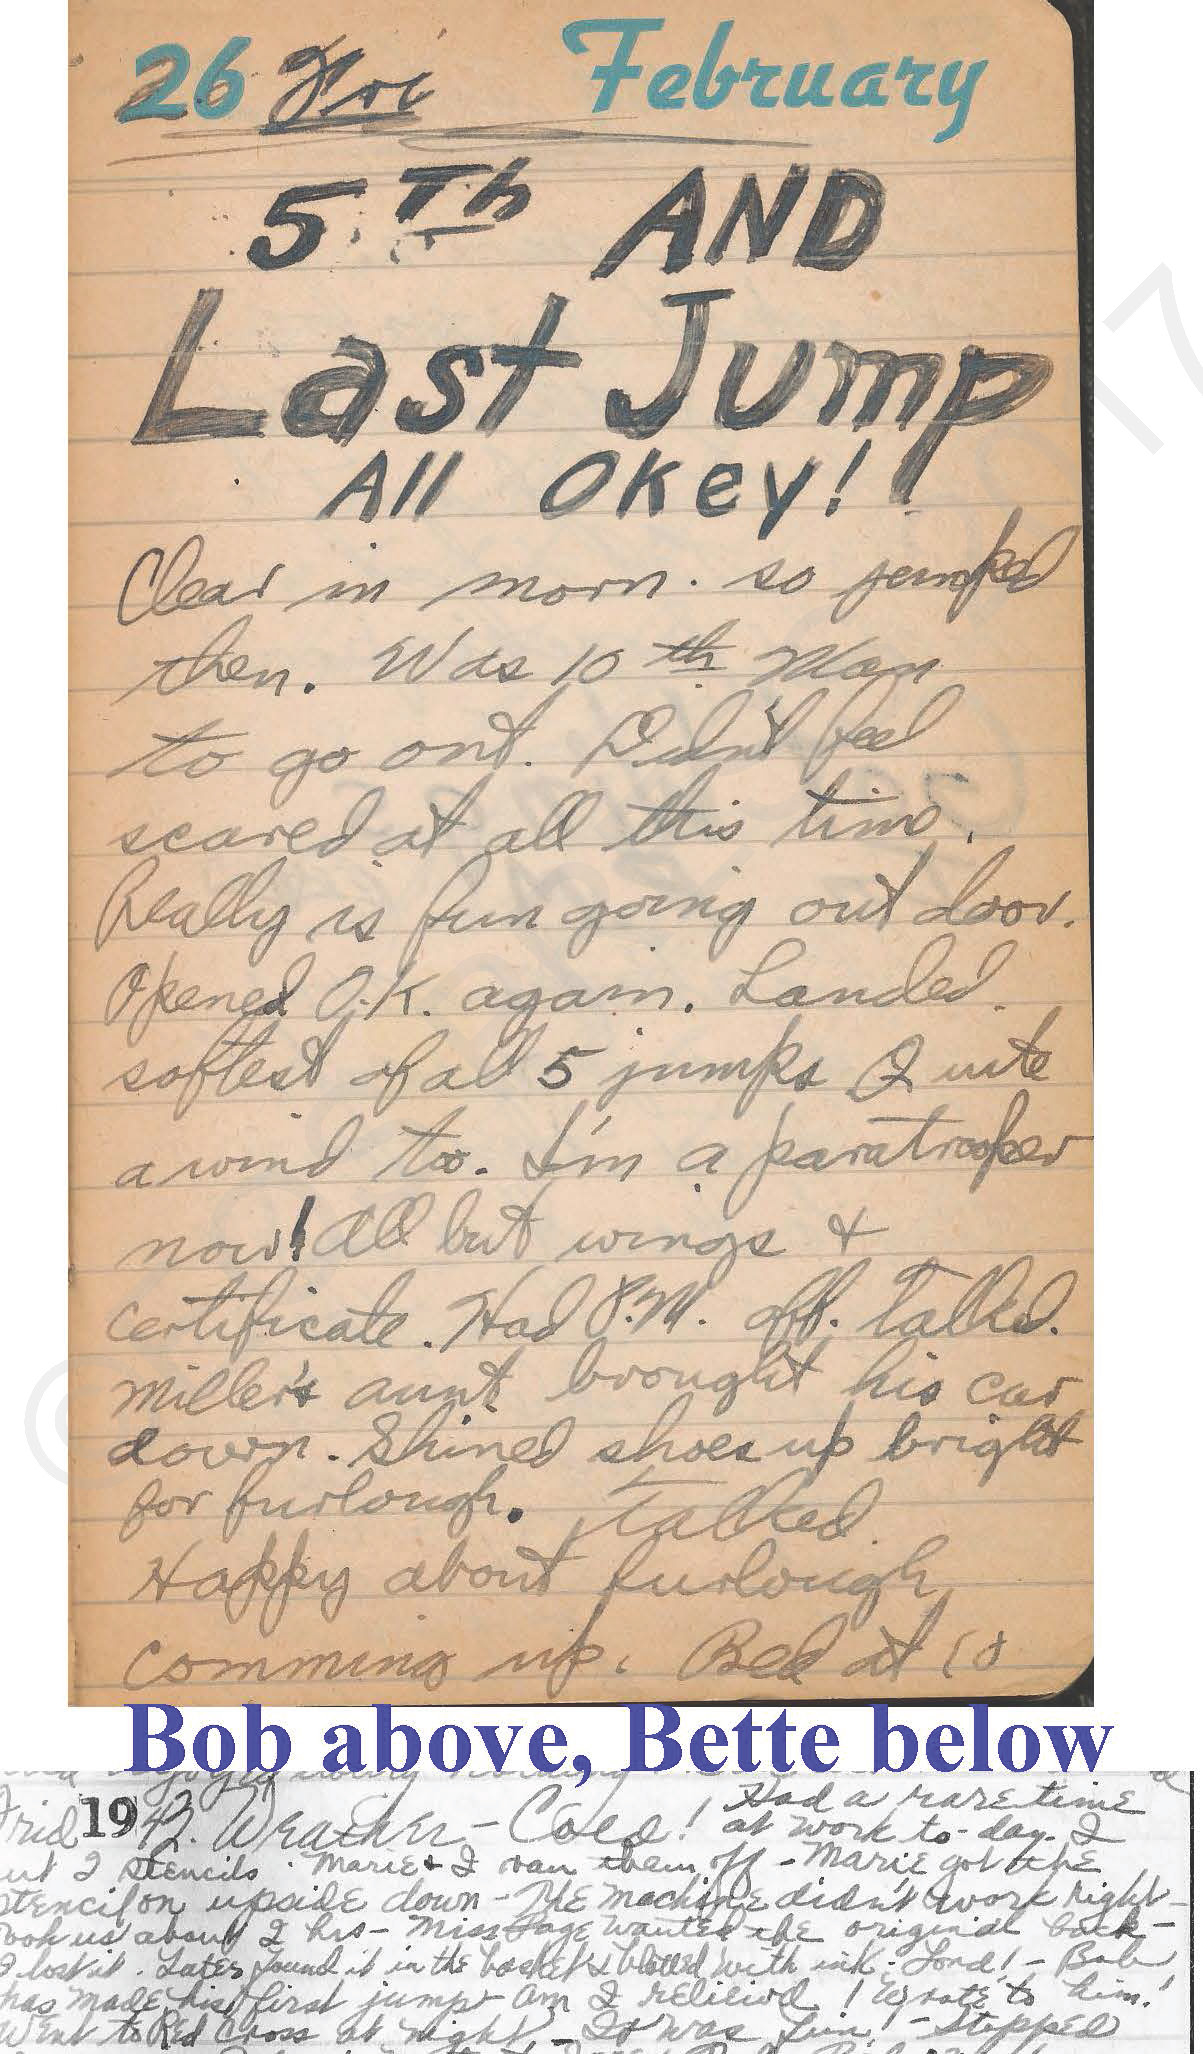 26 Fri February
5Th AND
Last Jump
All Okey!
Clear in morn. so jumped
then. Was 10th Man
to go out. Didn't feel
scared at all this time.
Really is fun going out door.
Opened O.K. again. Landed
softest of all 5 jumps Quite
a wind too. I'm a paratrooper
now! All but wings &
certificate. Had P.M. off. Talked.
Miller's aunt brought his car
down. Shined shoes up bright
for furlough. Talked.
Happy about furlough
comming up. Bed at 10
Bob above, Bette below
Frid 1942. Weather - Cold! Had a rare time
at work to-day. I
ut 2 stencils. Marie & I ran them off - Marie got the
stencil on upside down - The machine didn't work right -
ook us about 2 hrs - Miss Page wanted the original back -
I lost it. Later found it in the basket & blotted with ink. Lord! - Bob
has made his first jump - Am I relieivd! Wrote to him!
Went to Red Cross at night - It was fun! - Stopped